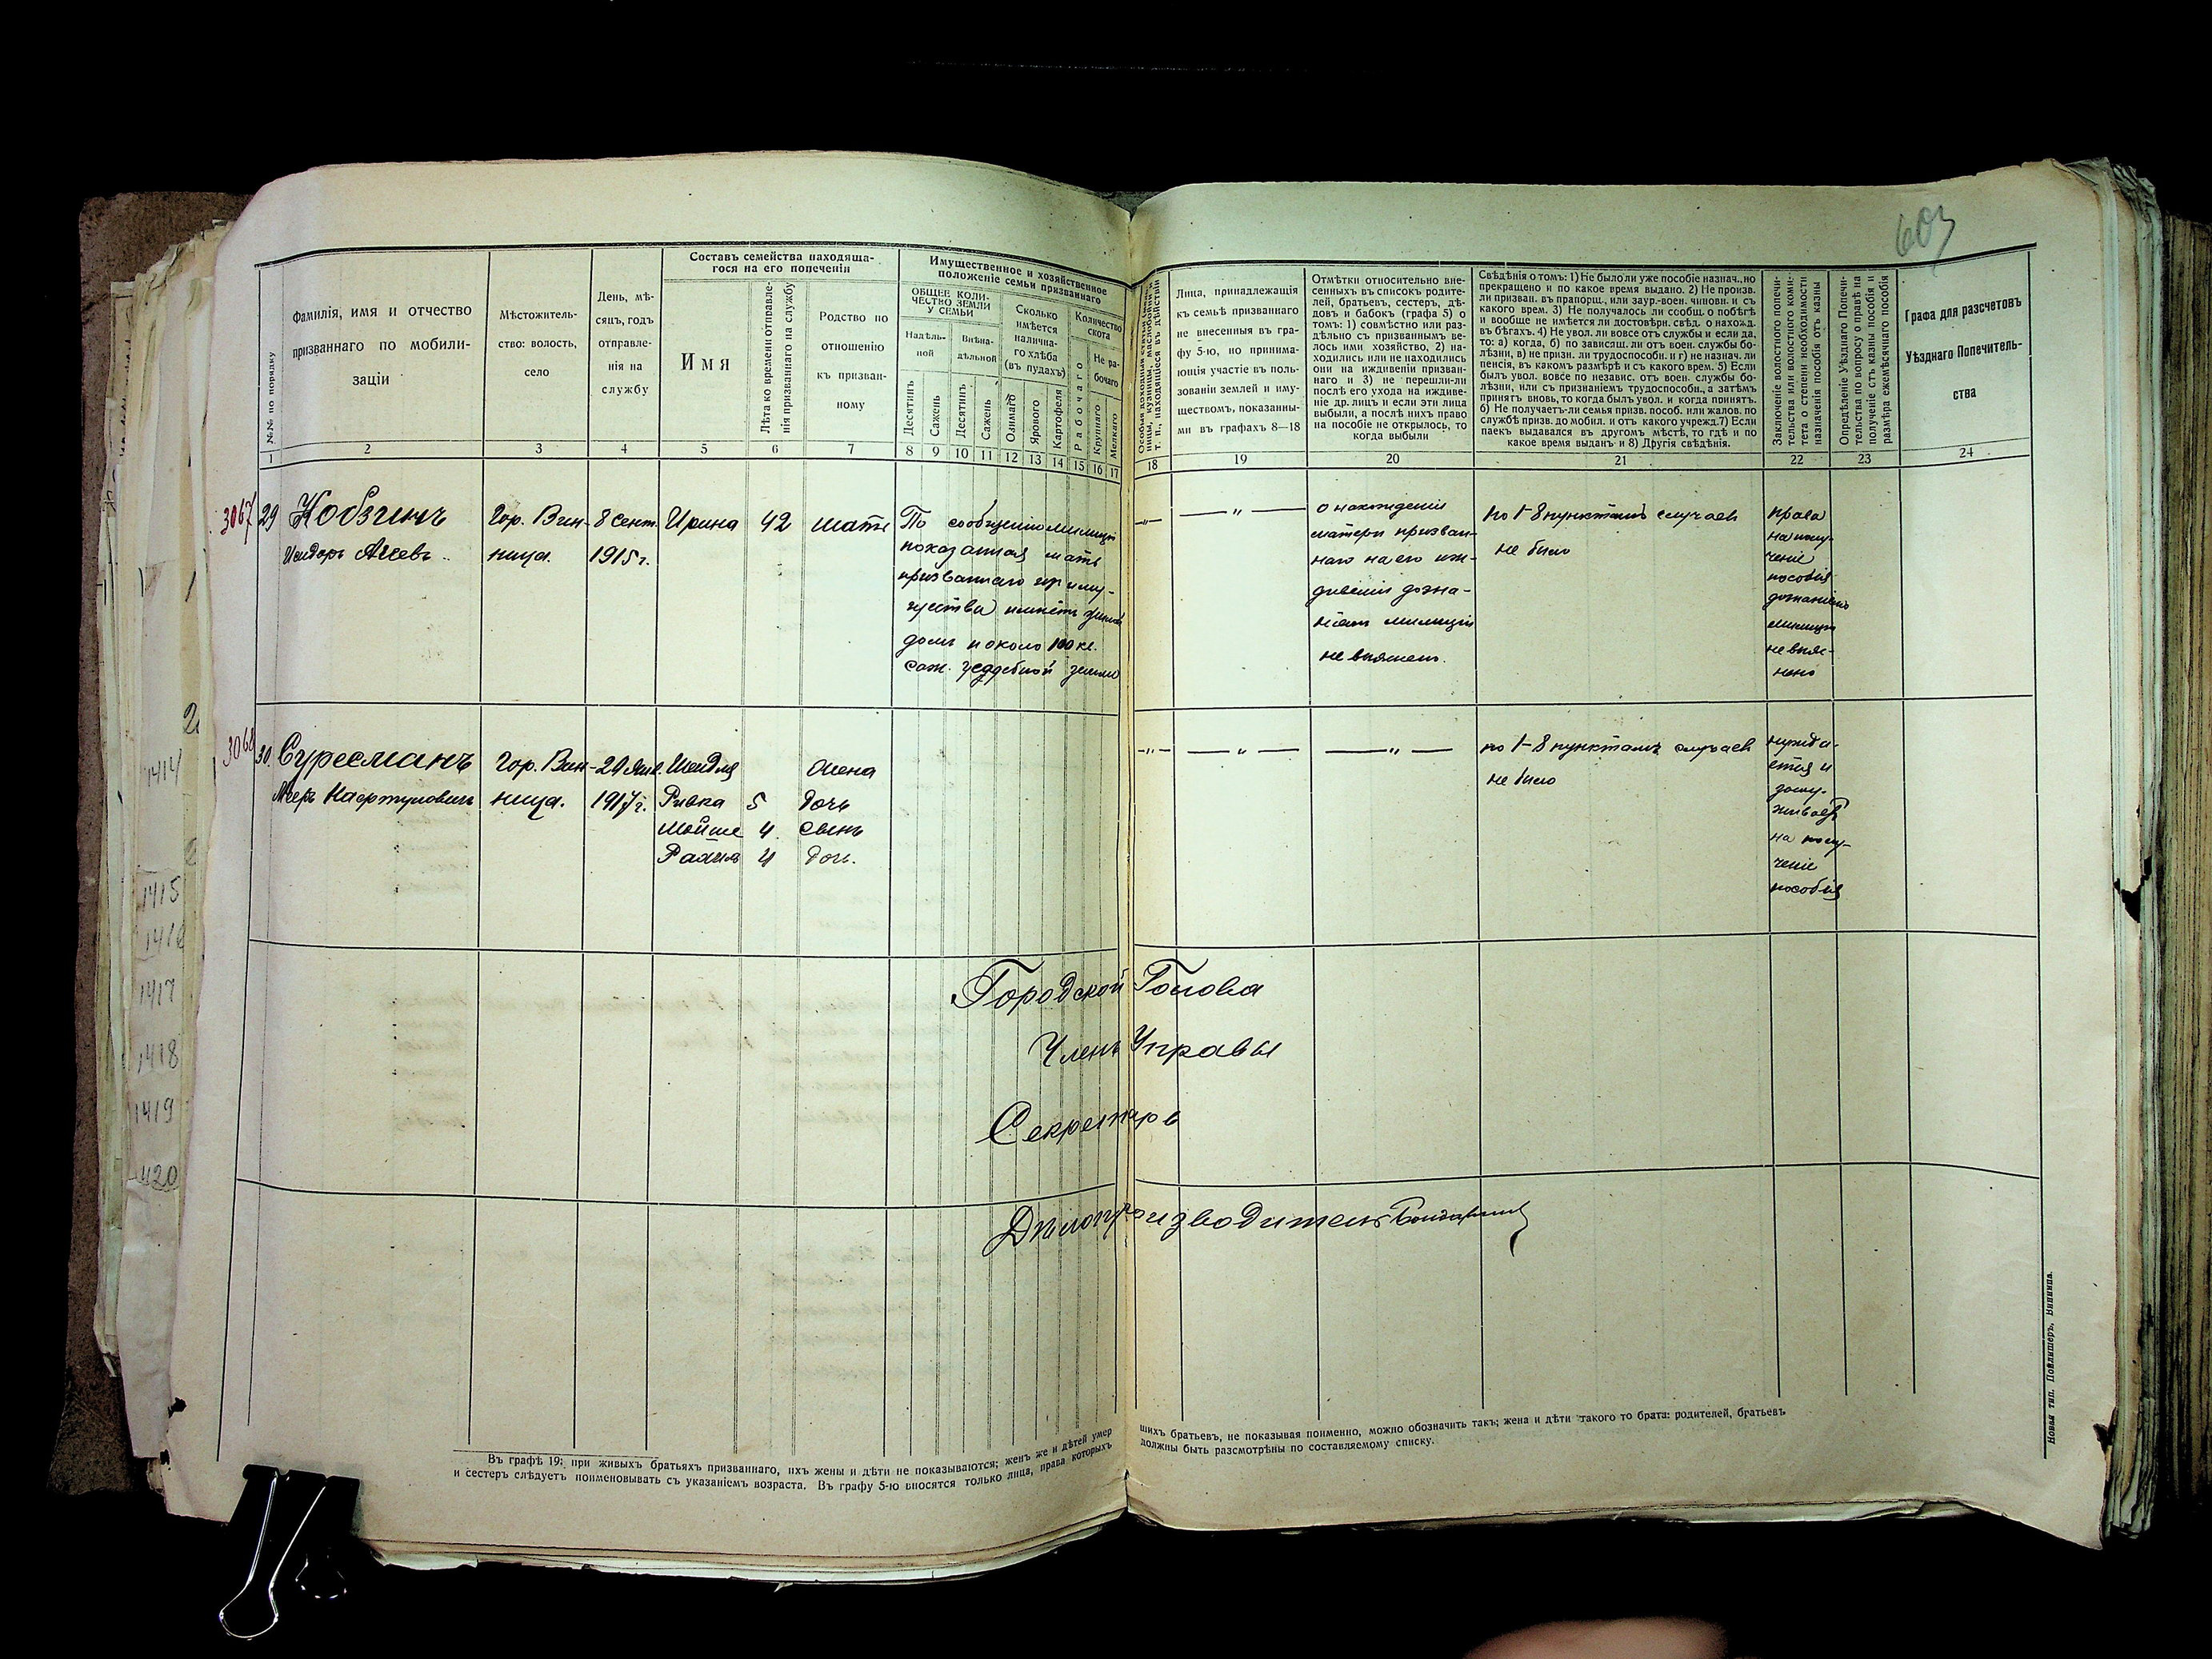 603
Составъ семейства находяща-
гося на его попеченіи
Имущественное и хозяйственное
положеніе семьи призваннаго
№№ по порядку
Фамилія, имя и отчество
призваннаго по мобили-
заціи
Мѣстожитель-
ство: волость,
село
День, мѣ-
сяцъ, годъ
отправле-
нія на
службу
Имя
Лѣта ко времени отправле-
нія призваннаго на службу
Родство по
отношенію
къ призван-
ному
ОБЩЕЕ КОЛИ-
ЧЕСТВО ЗЕМЛИ
У СЕМЬИ
Надѣль-
ной
Внѣна-
дѣльной
Десятинъ
Сажень
Десятинъ
Сажень
Сколько
имѣется
налична-
го хлѣба
(въ пудахъ)
Озимаго
Ярового
Картофеля
Количество
скота
Рабочаго
Не ра-
бочаго
Крупнаго
Мелкаго
т. п., находящіеся въ дѣйствіи
Лица, принадлежащія
къ семьѣ призваннаго
не внесенныя въ гра-
фу 5-ю, но принима-
ющія участіе въ поль-
зованіи землей и иму-
ществомъ, показанны-
ми въ графахъ 8—18
Отмѣтки относительно вне-
сенныхъ въ списокъ родите-
лей, братьевъ, сестеръ, дѣ-
довъ и бабокъ (графа 5) о
томъ: 1) совмѣстно или раз-
дѣльно съ призваннымъ ве-
лось ими хозяйство, 2) на-
ходились или не находились
они на иждивеніи призван-
наго и 3) не перешли-ли
послѣ его ухода на иждиве-
ніе др. лицъ и если эти лица
выбыли, а послѣ нихъ право
на пособіе не открылось, то
когда выбыли
Свѣдѣнія о томъ: 1) Не было ли уже пособіе назнач., но
прекращено и по какое время выдано. 2) Не произв.
ли призван. въ прапорщ., или заур.-воен. чиновн. и съ
какого врем. 3) Не получалось ли сообщ. о побѣгѣ
и вообще не имѣется ли достовѣрн. свѣд. о нахожд.
въ бѣгахъ. 4) Не увол. ли вовсе отъ службы и если да,
то: а) когда, б) по зависящ. ли отъ воен. службы бо-
лѣзни, в) не призн. ли трудоспособн. и г) не назнач. ли
пенсія, въ какомъ размѣрѣ и съ какого врем. 5) Если
былъ увол. вовсе по независ. отъ воен. службы бо-
лѣзни, или съ признаніемъ трудоспособн., а затѣмъ
принятъ вновь, то когда былъ увол. и когда принятъ.
6) Не получаетъ-ли семья призв. пособ. или жалов. по
службѣ призв. до мобил. и отъ какого учрежд. 7) Если
паекъ выдавался въ другомъ мѣстѣ, то гдѣ и по
какое время выданъ и 8) Другія свѣдѣнія.
Заключеніе волостного попечи-
тельства или волостного коми-
тета о степени необходимости
назначенія пособія отъ казны
Опредѣленіе Уѣзднаго Попечи-
тельства по вопросу о правѣ на
полученіе отъ казны пособія и
размѣра ежемѣсячнаго пособія
Графа для разсчетовъ
Уѣзднаго Попечитель-
ства
1 2 3 4 5 6 7 8 9 10 11 12 13 14 15 16 17 18 19 20 21 22 23 24
3067 29 Кобзинъ Гор. Вин- 8 Сент. Ирина 42 мать
Исидоръ Агеевъ ница. 1915 г.
По сообщенію милиціи
показанная мать
призваннаго
имѣетъ
домъ и около 100 кв.
саж. усадебной земли
—"— —"—
о нахожденіи
матери призван-
наго на его иж-
дивеніи дозна-
ніемъ милиціи
не выяснено.
по 1-8 пунктамъ случаев
не было
права
на полу-
ченіе
пособія
дознаніемъ
милиціи
не выяс-
нено
3068 30 Суресманъ Гор. Вин- 20 Янв. Шейдля жена
ница. 1917 г. Ривка 5 дочь
Мойше 4 сынъ
Рахиль 4 дочь.
—"— —"— —"—
по 1-8 пунктамъ случаев
не было
нужда-
ется и
на полу-
ченіе
пособія
Городской Голова
Членъ Управы
Секретарь
Дѣлопроизводитель
1414
1415
1416
1417
1418
1419
1420
Въ графѣ 19: при живыхъ братьяхъ призваннаго, ихъ жены и дѣти не показываются; женъ же и дѣтей умер
шихъ братьевъ, не показывая поименно, можно обозначить такъ; жена и дѣти такого то брата: родителей, братьевъ
и сестеръ слѣдуетъ поименовывать съ указаніемъ возраста. Въ графу 5-ю вносятся только лица, права которыхъ
должны быть разсмотрѣны по составляемому списку.
Новая тип. Поилишеръ, Винница.